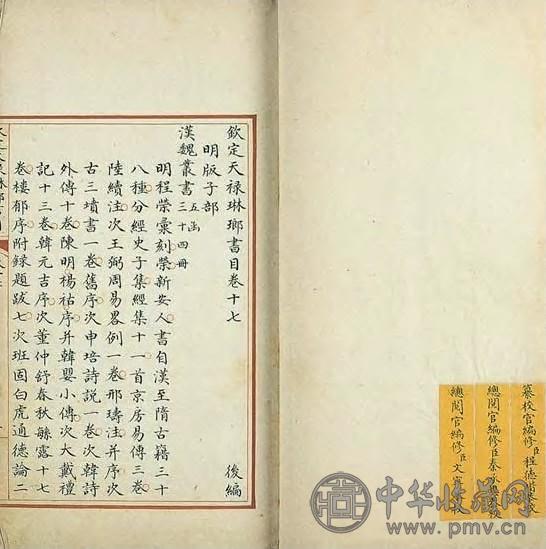 纂校官編修臣程德楷恭校
總閱官編修臣秦承業恭校
總閱官編修臣文寧恭校
欽定天祿琳瑯書目卷十七 後編
明版子部
漢魏叢書 五函三十四冊
明程榮彙刻榮新安人書自漢至隋古籍三十
八種分經史子集經集十一首京房易傳三卷
陸績注次王弼周易畧例一卷邢璹注并序次
古三墳書一卷舊序次申培詩說一卷次韓詩
外傳十卷陳明楊祜序并韓嬰小傳次大戴禮
記十三卷韓元吉序次董仲舒春秋緐露十七
卷樓郁序附錄題跋七次班固白虎通德論二
中华收藏网
www.pmv.cn